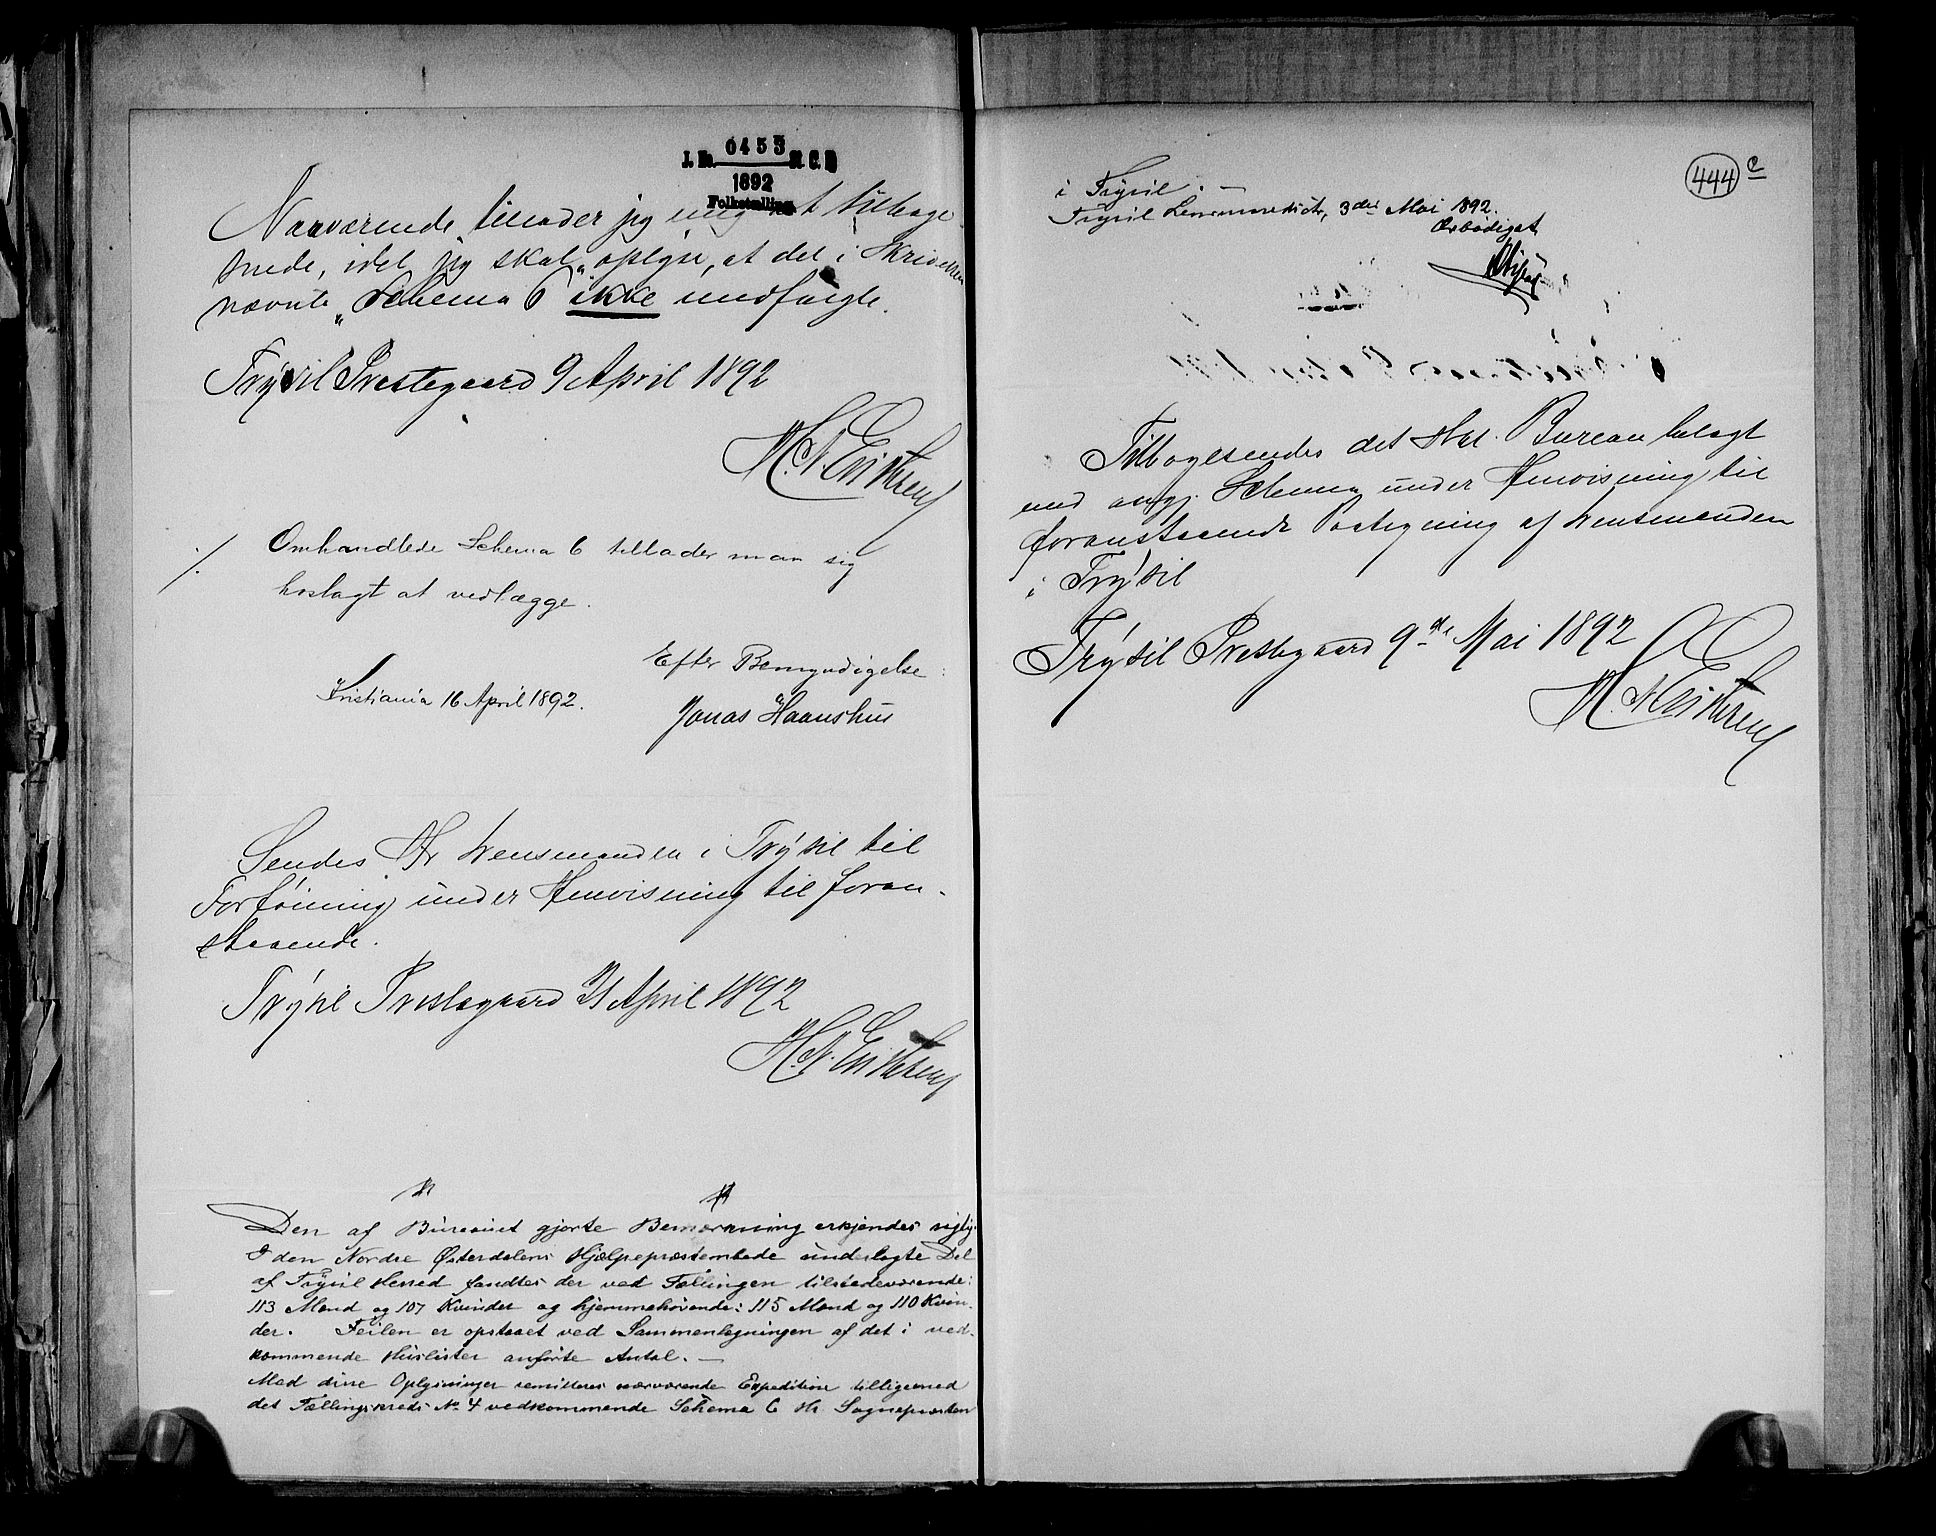 J. No. 0453 St. C. B.
1892
Folketælling
Nærværende tillader jeg mig at tilbage
sende, idet jeg skal oplyse, at det i Skrivelsen
nævnte „Schema 6" ikke medfulgte.
Trysil Præstegaard 9 April 1892
H. N.
./. Omhandlede Schema 6 tillader man sig
hoslagt at vedlægge.
Efter Bemyndigelse:
Kristiania 16 April 1892.
Jonas Haanshus
Sendes Hr Lensmanden i Trysil til
Forføining under Henvisning til foran-
staaende.
Trysil Præstegaard 21 April 1892
H. N.
Den af Bureauet gjorte Bemærkning erkjendes rigtig.
I den Nordre Østerdalens Hjælpepræstembede underlagte Del
af Trysil Herred fandtes der ved Tællingen tilstedeværende:
113 Mænd og 107 Kvinder og hjemmehørende: 115 Mænd og 110 Kvin-
der. Feilen er opstaaet ved Sammenlægningen af det i ved-
kommende Huslister anførte Antal. —
Med disse Oplysninger remitteres nærværende Expedition tilligemed
det Tællingskreds No 4 vedkommende Schema 6 Hr. Sognepræsten
444 c
i Trysil. —
Trysil Lensmandsdistr, 3die Mai 1892.
Ærbødigst
Tilbagesendes det Stat. Bureau belagt
med angj. Schema under Henvisning til
foranstaaende Paategning af Lensmanden
i Trysil
Trysil Præstegaard 9de Mai 1892
H. N.